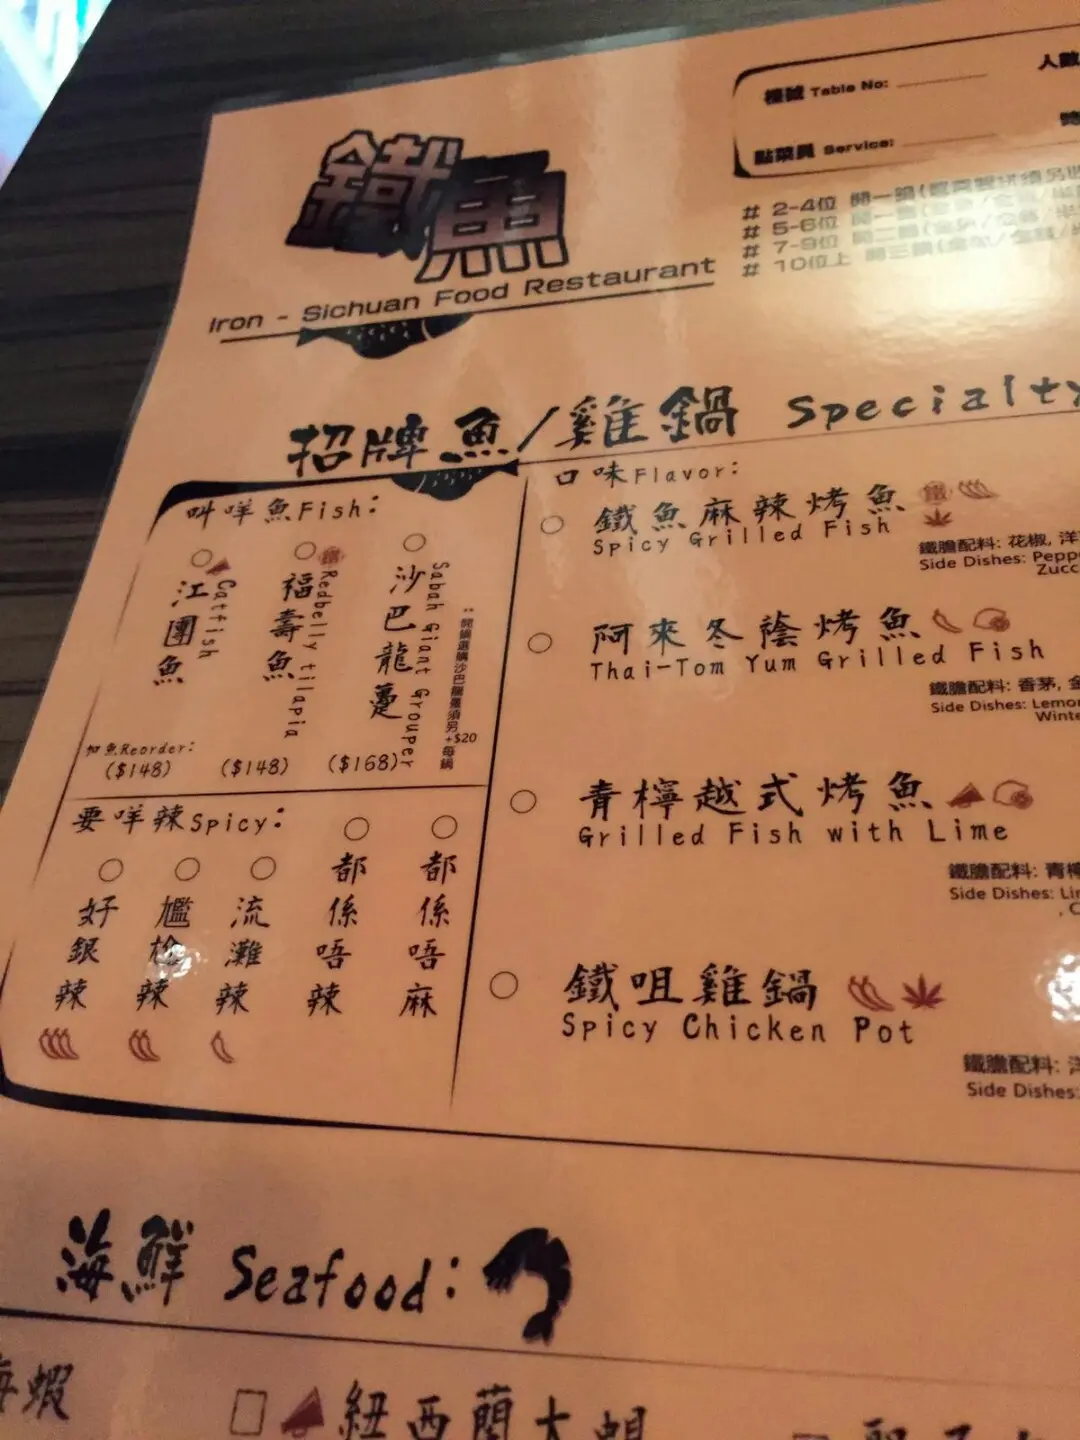 鐵魚
Iron - Sichuan Food Restaurant
檯號 Table No:
人數
點菜員 Service:
# 2-4位 開一鍋
# 5-6位 開一
# 7-9位 開二鍋
# 10位上 開三鍋
招牌魚/雞鍋 Specialty
叫咩魚Fish:
江團魚
Catfish
福壽魚
Redbelly tilapia
沙巴龍躉
Sabah Giant Grouper
+$20
每鍋
加魚Reorder:
($148) ($148) ($168)
要咩辣Spicy:
好銀辣
尷尬辣
流灘辣
都係唔辣
都係唔麻
口味Flavor:
鐵魚麻辣烤魚
Spicy Grilled Fish
鐵膽配料: 花椒, 洋
Side Dishes: Peppe
Zucc
阿來冬蔭烤魚
Thai-Tom Yum Grilled Fish
鐵膽配料: 香茅, 金
Side Dishes: Lemon
Winte
青檸越式烤魚
Grilled Fish with Lime
鐵膽配料: 青檸
Side Dishes: Lim
, C
鐵咀雞鍋
Spicy Chicken Pot
鐵膽配料: 洋
Side Dishes:
海鮮 Seafood:
蝦
紐西蘭大蜆